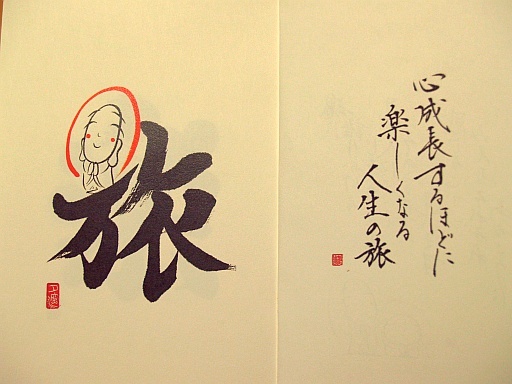 旅
心成長するほどに
楽しくなる
人生の旅